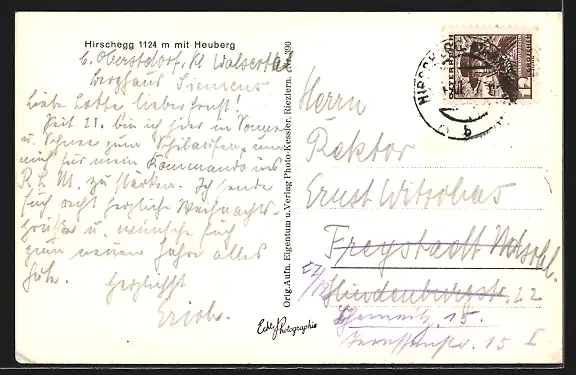 Hirschegg 1124 m mit Heuberg
b. Oberstdorf. Kl. Walsertal
Berghaus Siemens
Liebe Lotte lieber Ernst!
Seit 21. bin ich hier in Sonne
u. Schnee zum Schilaufen, um
mich für mein Kommando ins
R.L.M. zu stärken. Ich sende
Euch recht herzliche Weihnachts-
grüße u. wünsche Euch
zum neuen Jahre alles
Gute.
Herzlichst
Erich.
Orig.-Aufn. Eigentum u. Verlag Photo-Kessler, Riezlern.
390
Echte Photographie
HIRSCHEGG
b
12
Herrn
Rektor
Ernst
Freystadt
Hindenburgstr. 22
Chemnitz. 15.
15 I